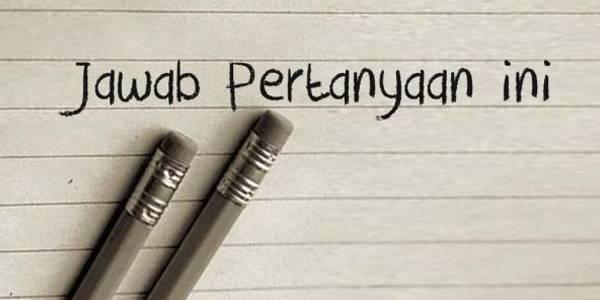 Jawab Pertanyaan ini